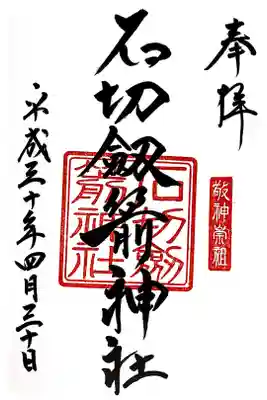 奉拝
敬神崇祖
石切劔箭神社
石切劔箭神社
平成三十年四月三十日